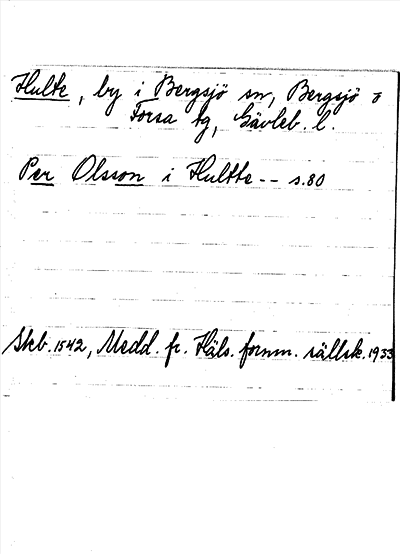 Hulte, by i Bergsjö sn, Bergsjö o
Forsa tg, Gävleb. l.
Per Olsson i Hultte -- s. 80
Skb. 1542, Medd. fr. Häls. fornm. sällsk. 1933